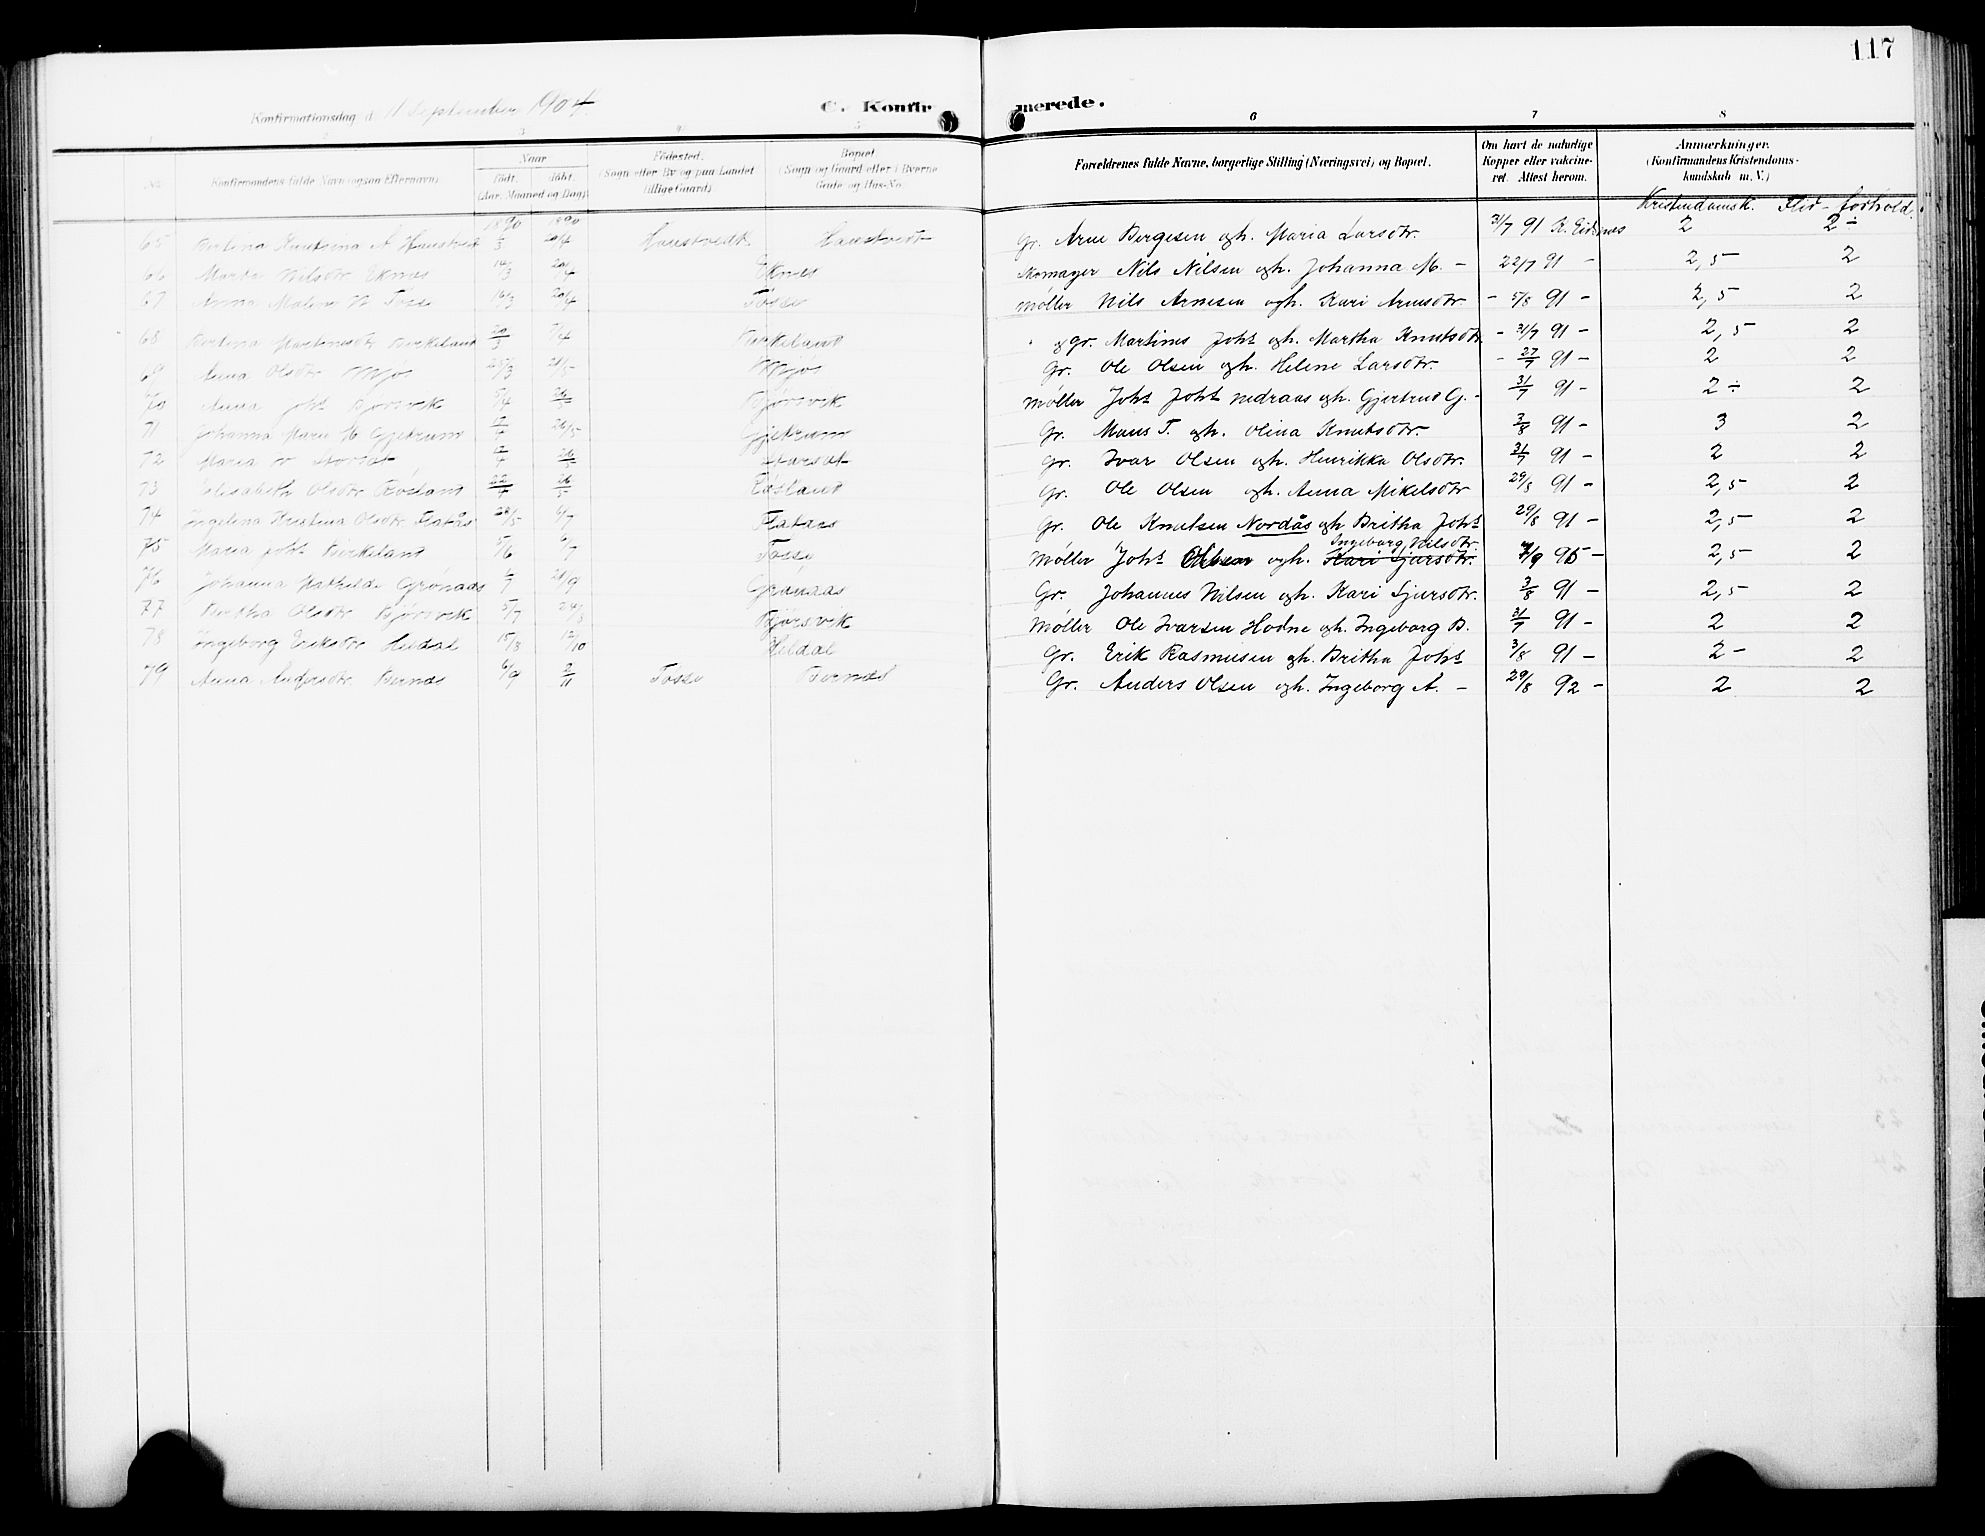 117
Konfirmationsdag d. 11 September 1904. C. Konfirmerede.
3 6 7 8
No. Konfirmandens fulde Navn (ogsaa Efternavn). Naar født. døbt. (Aar, Maaned og Dag). Fødested. (Sogn eller By og paa Landet tillige Gaard). Bopæl (Sogn og Gaard eller i Byerne Gade og Hus-No. Forældrenes fulde Navne, borgerlige Stilling (Næringsvei) og Bopæl. Om havt de naturlige Kopper eller vakcineret. Attest herom. Anmerkninger. (Konfirmandens Kristendomskundskab m. V.)
1890 1890 Kristendomsk. Flid - forhold.
65 Bertina Knutsina A. Haustvedt /3 20/4 Haustvedt Haustvedt Gr. Arne Bergesen og h. Maria Larsdtr. 31/7 91 K. Eidsnes 2 2÷
66 Marta Nilsdtr Eknes 14/3 20/4 Eknes Nils Nilsen og h. Johanna M. - 22/7 91 - 2,5 2
67 Anna Malene N. Fosse 16/3 20/4 Fosse Møller Nils Arnesen og h. Kari Arnesdtr. - 5/8 91 - 2,5 2
68 Bertina Martinesdtr Birkeland 20/3 7/4 Birkeland " og gr. Martines Johs og h. Martha Knutsdtr. - 31/7 91 - 2,5 2
69 Anna Olsdtr Mjøs 25/3 Mjøs Gr. Ole Olsen og h. Helene Larsdtr. - 27/7 91 - 2 2
70 Anna Johs Bjørsvik 5/4 26/5 Bjørsvik Møller Johs Johs nedraas og h. Gjertrud G. - 31/7 91 - 2÷ 2
71 Johanna Marie M. Gjetrum 26/5 Gjetrum Gr. Mons T. og h. Olina Knutsdtr. 3/8 91 - 3 2
72 Maria Iv. Storset 26/5 Storset Gr. Ivar Olsen og h. Henrikka Olsdtr. 31/7 91 - 2 2
73 Elisabeth Olsdtr Rosland 22/4 26/5 Rosland Gr. Ole Olsen og h. Anna Mikelsdtr 29/8 91 - 2,5 2
74 Ingelina Kristina Olsdtr Flatås 28/5 6/7 Flataas Gr. Ole Knutsen Nordås og h Britha Johs 29/8 91 - 2,5 2
75 Maria Johs Birkeland 5/6 6/7 Fosse Møller Johs Olsen og h. Kari Sjursdtr. Ingeborg Nilsdtr. 7/9 95 - 2,5 2
76 Johanna Mathilde Grønaas /7 21/9 Grønaas Gr. Johannes Nilsen og h. Kari Sjursdtr. 3/8 91 - 2,5 2
77 Bertha Olsdtr Bjørsvik 5/7 24/8 Bjørsvik Møller Ole Ivarsen Hodne og h. Ingeborg B. 31/7 91 - 2 2
78 Ingeborg Eriksdtr Heldal 15/8 12/10 Heldal Gr. Erik Rasmusen og h. Britha Johs 3/8 91 - 2- 2
79 Anna Andersdtr Bernes 6/9 2/11 Fosse Bernes Gr. Anders Olsen og h. Ingeborg A. - 29/8 92 - 2 2